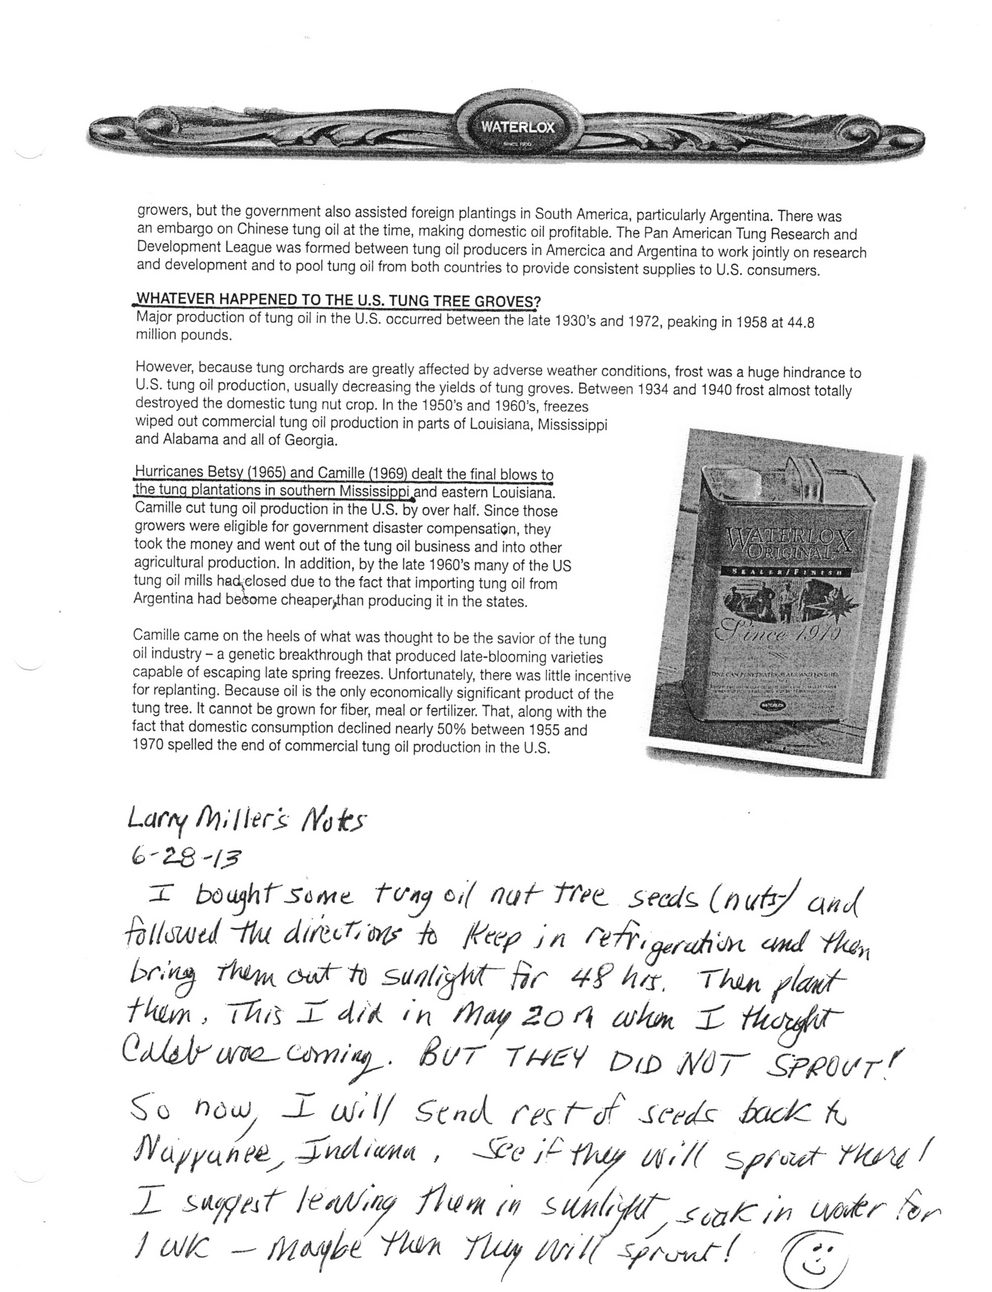 WATERLOX
SINCE 1910
growers, but the government also assisted foreign plantings in South America, particularly Argentina. There was
an embargo on Chinese tung oil at the time, making domestic oil profitable. The Pan American Tung Research and
Development League was formed between tung oil producers in Amercica and Argentina to work jointly on research
and development and to pool tung oil from both countries to provide consistent supplies to U.S. consumers.
WHATEVER HAPPENED TO THE U.S. TUNG TREE GROVES?
Major production of tung oil in the U.S. occurred between the late 1930's and 1972, peaking in 1958 at 44.8
million pounds.
However, because tung orchards are greatly affected by adverse weather conditions, frost was a huge hindrance to
U.S. tung oil production, usually decreasing the yields of tung groves. Between 1934 and 1940 frost almost totally
destroyed the domestic tung nut crop. In the 1950's and 1960's, freezes
wiped out commercial tung oil production in parts of Louisiana, Mississippi
and Alabama and all of Georgia.
Hurricanes Betsy (1965) and Camille (1969) dealt the final blows to
the tung plantations in southern Mississippi and eastern Louisiana.
Camille cut tung oil production in the U.S. by over half. Since those
growers were eligible for government disaster compensation, they
took the money and went out of the tung oil business and into other
agricultural production. In addition, by the late 1960's many of the US
tung oil mills had closed due to the fact that importing tung oil from
Argentina had become cheaper than producing it in the states.
Camille came on the heels of what was thought to be the savior of the tung
oil industry – a genetic breakthrough that produced late-blooming varieties
capable of escaping late spring freezes. Unfortunately, there was little incentive
for replanting. Because oil is the only economically significant product of the
tung tree. It cannot be grown for fiber, meal or fertilizer. That, along with the
fact that domestic consumption declined nearly 50% between 1955 and
1970 spelled the end of commercial tung oil production in the U.S.
WATERLOX
ORIGINAL
SEALER/FINISH
Since 1910
WATERLOX
Larry Miller's Notes
6-28-13
I bought some tung oil nut tree seeds (nuts) and
followed the directions to keep in refrigeration and then
bring them out to sunlight for 48 hrs. Then plant
them. This I did in May 20th when I thought
Caleb was coming. BUT THEY DID NOT SPROUT!
So now, I will send rest of seeds back to
Nappanee, Indiana. See if they will sprout there!
I suggest leaving them in sunlight, soak in water for
1 wk – Maybe then they will sprout!